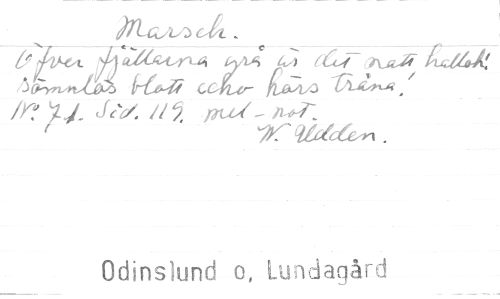 Marsch.
Öfver fjällarna grå är det natt hallåh!
sömnlös blott echo hörs tråna!
No. 71. Sid. 119. mel-not.
W. Udden.
Odinslund o, Lundagård